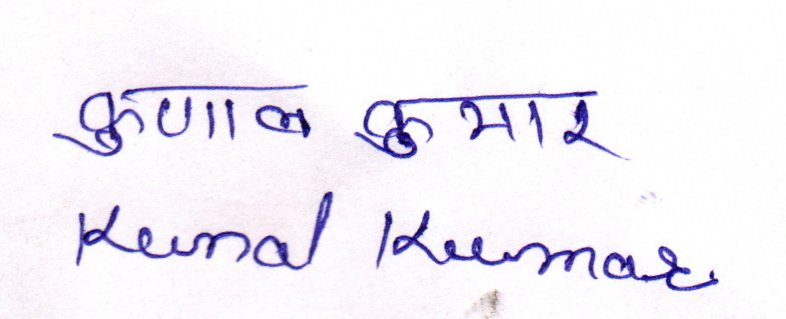 कुणाल कुमार
Kunal Kumar